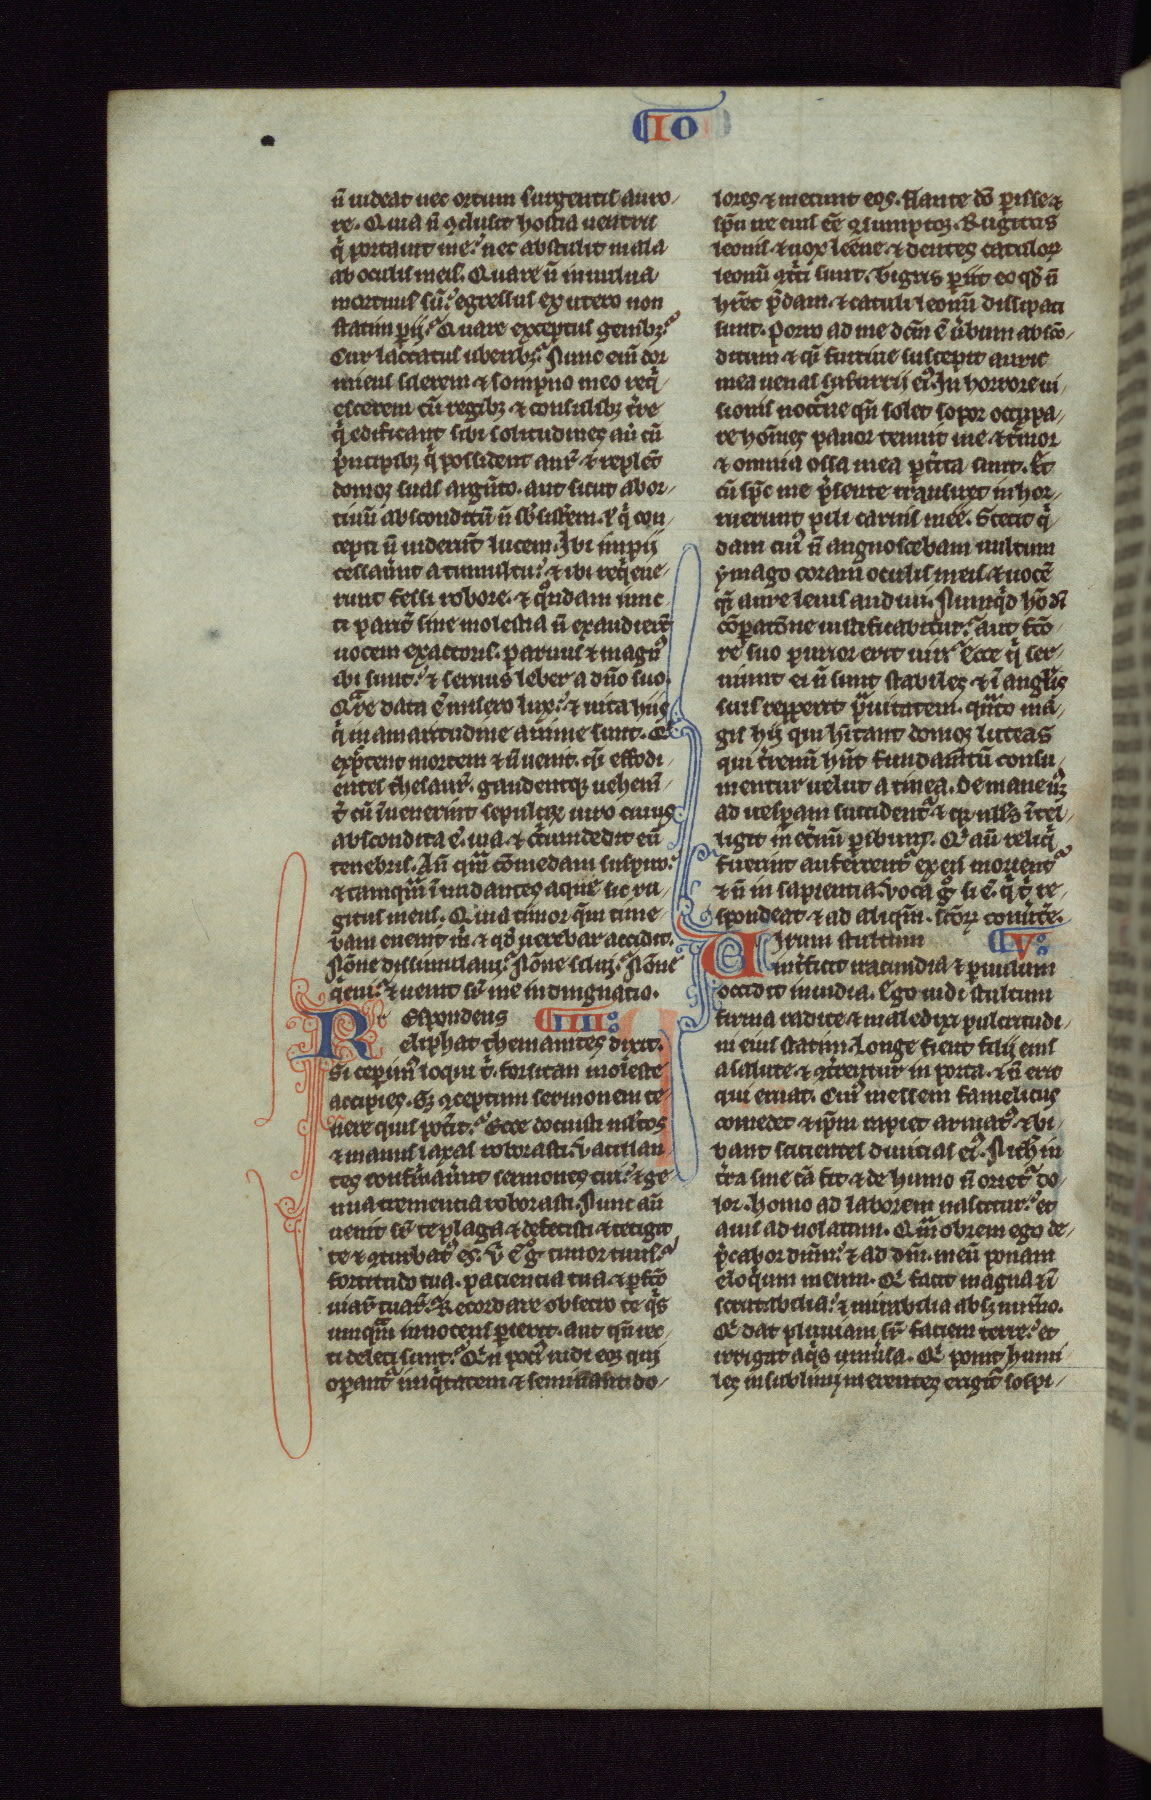 IO
n̄ uideat nec ortum surgentis auro-
re. Quia n̄ ꝯclusit hostia uentris
q̇ portauit me: nec abstulit mala
ab oculis meis. Quare n̄ in uulua
mortuus sū: egressus ex utero non
statim perij? Quare exceptus genibꝫ?
Cur lactatus uberibꝫ? Nunc enī dor
miens silerem ⁊ sompno meo req̇-
escerem cū regibꝫ ⁊ consulibꝫ t̄re
q̇ edificant sibi solitudines aū cū
ṗncipibꝫ q̇ possident aurū ⁊ replēt
domos suas argēto. aut sicut abor-
tiuū absconditū n̄ sb̄sisterem. ł q̇ con-
cepti n̄ uiderūt lucem. Ibi impij
cessauūt a tumultu: ⁊ ibi req̇eue-
runt fessi robore. ⁊ q̊ndam iunc-
ti parit̄ sine molestia n̄ exaudierūt
uocem exactoris. paruus ⁊ magn᷒
ibi sunt: ⁊ seruus leber a dn̄o suo.
Qᷓre data ē misero lux: ⁊ uita hiis
q̇ in amaritudine anime sunt. Qi
exp̄ctent mortem ⁊ n̄ uenit. q̄i effodi-
entes thesaur̄. gaudentqꝫ uehem̄-
t̄ cū īuenerint sepulcꝝ uiro cuius
abscondita ē. uia. ⁊ c̄cumdedit eū
tenebris. An̄ qᷓm cōmedam suspiro:
⁊ tamqᷓm īundantes aque sic ru-
gitus meus. Quia timor qᷓm time-
bam euenit m̄. ⁊ qd̄ uerebar accidit.
Nōne dissimulaui? Nōne silui? Nōne
q̇eui? ⁊ uenit sr̄ me indingnatio.
Respondens IIII:
eliphat themanites dixit.
Si ceperim᷒ loqui t̄. forsitan moleste
accipies. Sꝫ ꝯceptum sermonem te-
nere quis pot̄it? Ecce docuisti ml̄tos
⁊ manus laxas roborasti. Vacillan-
tes confirmauūt sermones tui: ⁊ ge-
nua trementia roborasti. Nunc aū
uenit sr̄ te plaga ⁊ defecisti. ⁊ tetigit
te ⁊ ꝯturbat᷒ es. V̄ ē g̊ timor tuus?
fortitudo tua. paciencia tua. ⁊ ꝑfcō
uiar̄ tuar̄? Recordare obsecro te q̇s
umqᷓm innocens perierit. aut qn̄ rec-
ti deleti sunt? Qin poci᷒ uidi eos qui
operant̄ iniq̇tatem ⁊ seminant do-
lores ⁊ metunt eos. flante dō perisse ⁊
sp̄u ire eius eē ꝯsumptos. Rugitus
leonis ⁊ uox leēne. ⁊ dentes catulor
leonū ꝯt̄ti sunt. Tigris periit eo qd̄ n̄
hr̄et p̄dam. ⁊ catuli leonū dissipati
sunt. Porro ad me dc̄m ē ūbum abscō-
ditum ⁊ q̄i furtiue suscepit auris
mea uenas susurrij ei᷒. In horrore ui-
sionis noct̄ne qn̄ solet sopor occupa-
re hōīes pauor tenuit me ⁊ t̄mor
⁊ omnia ossa mea pert̄ita sunt. Et
cū sp̄c me p̄sente tᷓnsiret in hor-
ruerunt pili carnis mee. Stetit q̇-
dam cui᷒ n̄ angnoscebam uultum
ymago coram oculis meis ⁊ uocē
q̄i aure lenis audiui. Numq̇d hō dī
cōparatōne iustificabitur: aut fc̄o
re suo purior erit uir? Ecce q̇ ser-
uiunt ei n̄ sunt stabiles. ⁊ ī anglīs
suis repperit p̄uitatem. qᷓnto ma-
gis hij qui hītant domos luteas
qui t̄renū hn̄t fundamtū consu-
mentur uelut a tinea. De mane us̄
ad uesperam succident̄ ⁊ qr nll̄s ītel-
ligit in et̄num peribunt. Qi aū reliq̇
fuerint auferrent̄ ex eis morient̄
⁊ n̄ in sapientia. Voca g̊ si ē. q̇ t̄ re-
spondeat. ⁊ ad aliqᷓm. scōꝝ conūt̄e.
Virum stultum V:
int̄ficit iracundia ⁊ paruulum
occidit inuidia. Ego uidi stultum
firma radice ⁊ maledixi pulcritudi-
ni eius statim. Longe fient filij eius
a salute. ⁊ ꝯt̄entur in porta. ⁊ n̄ erit
qui eruat. Cui᷒ messem famelicus
comedet ⁊ ip̄m rapiet armat᷒. ⁊ bi-
bant sicientes diuicias ei᷒. Nich̄ in
t̄ra sine cā fit ⁊ de humo n̄ oriet̄ do-
lor. Homo ad laborem nascitur: et
auis ad uolatum. Qᷓm obrem ego de-
p̄cabor dn̄m: ⁊ ad dm̄. meū ponam
eloq̇um meum. Qi facit magna ⁊ ī
scrutabilia: ⁊ mirabilia absꝫ num̄o.
Qi dat pluuiam sr̄ faciem terre: et
irrigat aq̇s uniūsa. Qi ponit humi
les in sublimi merentes erigit sospi-